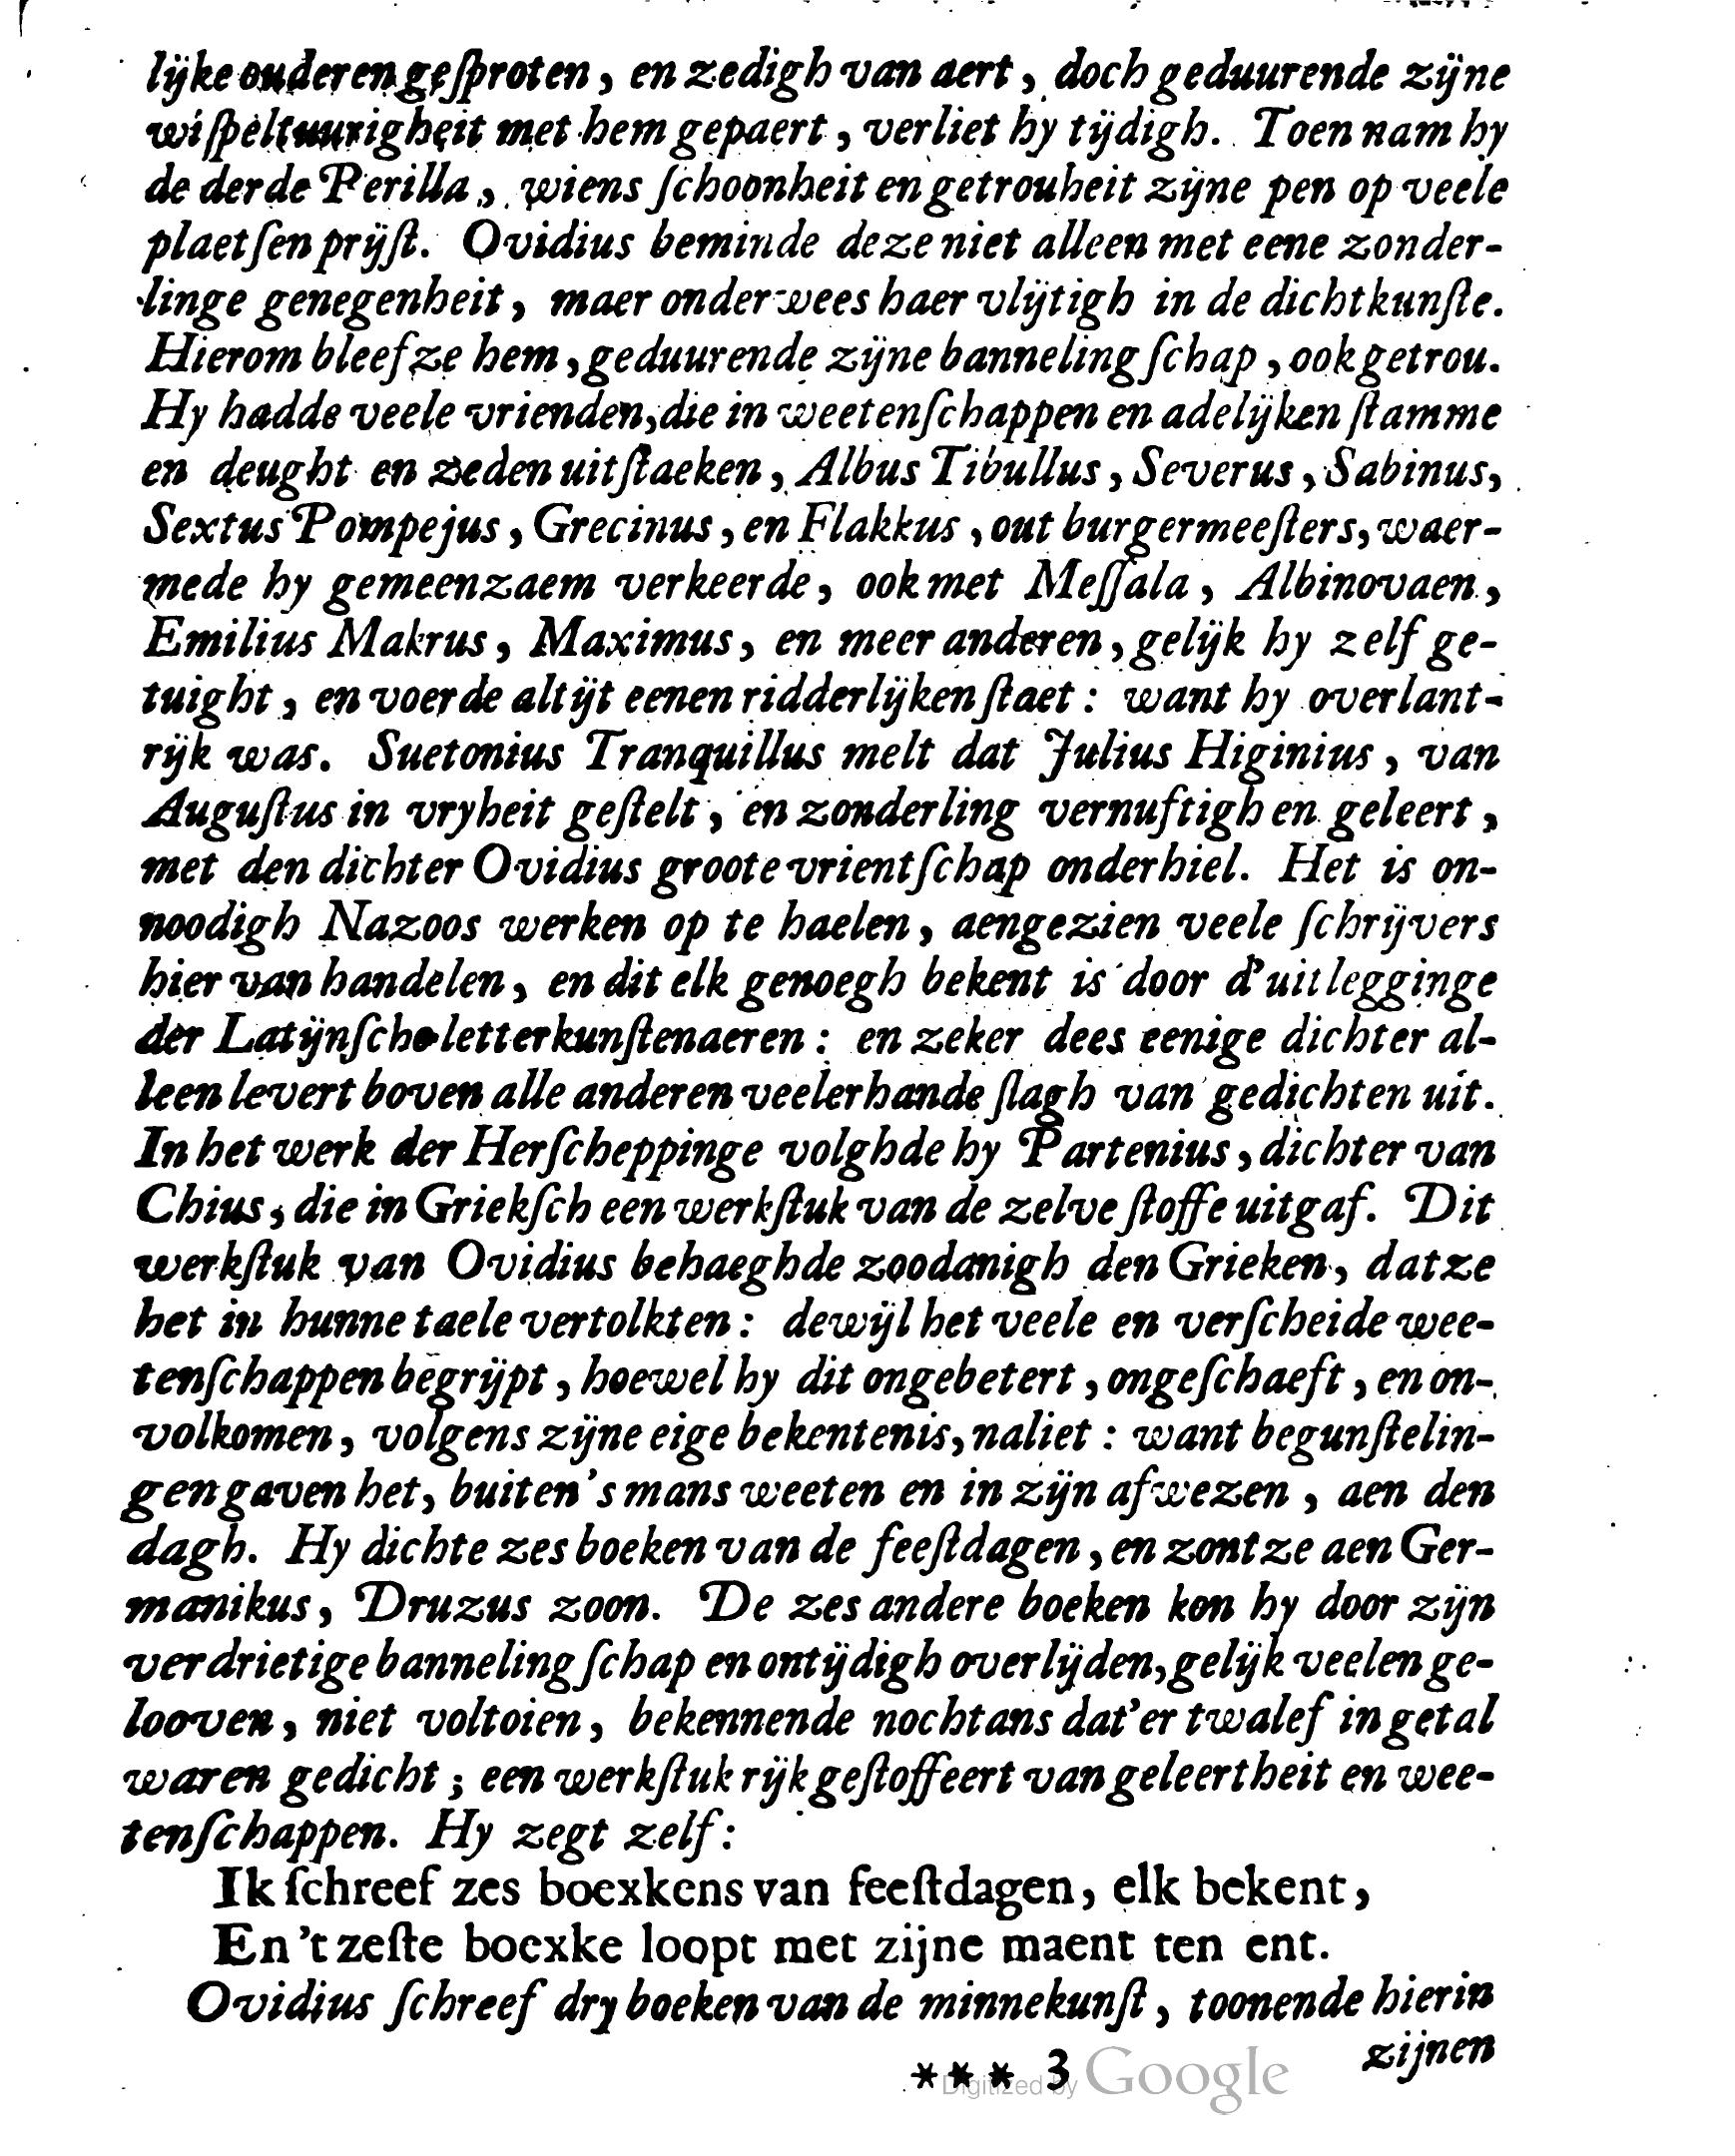 lijke ouderen geſproten, en zedigh van aert, doch geduurende zijne
wiſpeltuurigheit met hem gepaert, verliet hy tijdigh. Toen nam hy
de derde Perilla, wiens ſchoonheit en getrouheit zijne pen op veele
plaetſen prijſt. Ovidius beminde deze niet alleen met eene zonder-
linge genegenheit, maer onderwees haer vlijtigh in de dichtkunſte.
Hierom bleef ze hem, geduurende zijne bannelingſchap, ook getrou.
Hy hadde veele vrienden, die in weetenſchappen en adelijken ſtamme
en deught en zeden uitſtaeken, Albus Tibullus, Severus, Sabinus,
Sextus Pompejus, Grecinus, en Flakkus, out burgermeeſters, waer-
mede hy gemeenzaem verkeerde, ook met Meſſala, Albinovaen,
Emilius Makrus, Maximus, en meer anderen, gelijk hy zelf ge-
tuight, en voerde altijt eenen ridderlijken ſtaet: want hy overlant-
rijk was. Suetonius Tranquillus melt dat Julius Higinius, van
Auguſtus in vryheit geſtelt, en zonderling vernuftigh en geleert,
met den dichter Ovidius groote vrientſchap onderhiel. Het is on-
noodigh Nazoos werken op te haelen, aengezien veele ſchrijvers
hier van handelen, en dit elk genoegh bekent is door d'uitlegginge
der Latijnſche letterkunſtenaeren: en zeker dees eenige dichter al-
leen levert boven alle anderen veelerhande ſlagh van gedichten uit.
In het werk der Herſcheppinge volghde hy Partenius, dichter van
Chius, die in Griekſch een werkſtuk van de zelve ſtoffe uitgaf. Dit
werkſtuk van Ovidius behaeghde zoodanigh den Grieken, dat ze
het in hunne taele vertolkten: dewijl het veele en verſcheide wee-
tenſchappen begrijpt, hoewel hy dit ongebetert, ongeſchaeft, en on-
volkomen, volgens zijne eige bekentenis, naliet: want begunſtelin-
gen gaven het, buiten 's mans weeten en in zijn afwezen, aen den
dagh. Hy dichte zes boeken van de feeſtdagen, en zont ze aen Ger-
manikus, Druzus zoon. De zes andere boeken kon hy door zijn
verdrietige bannelingſchap en ontijdigh overlijden, gelijk veelen ge-
looven, niet voltoien, bekennende nochtans dat'er twalef in getal
waren gedicht; een werkſtuk rijk geſtoffeert van geleertheit en wee-
tenſchappen. Hy zegt zelf:
Ik ſchreef zes boexkens van feeſtdagen, elk bekent,
En 't zeſte boexke loopt met zijne maent ten ent.
Ovidius ſchreef dry boeken van de minnekunſt, toonende hierin
*** 3 zijnen
Digitized by Google